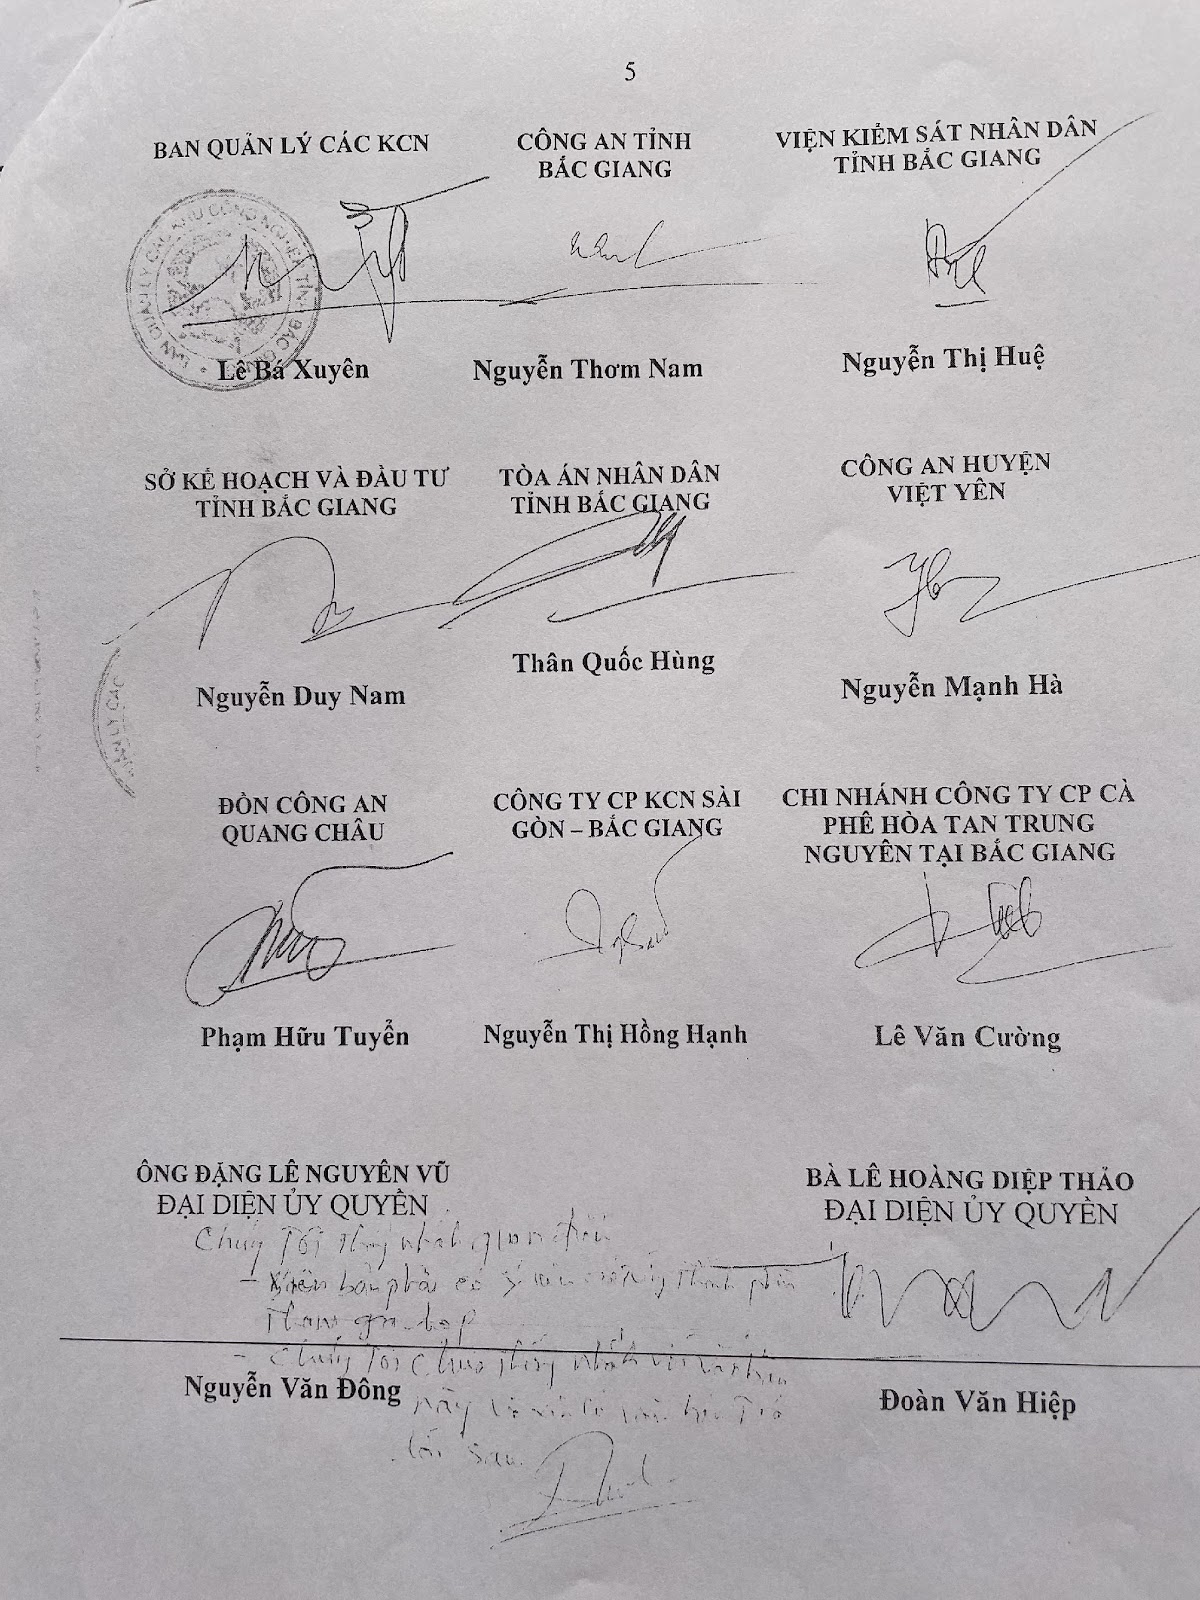 5
BAN QUẢN LÝ CÁC KCN
CÔNG AN TỈNH
BẮC GIANG
VIỆN KIỂM SÁT NHÂN DÂN
TỈNH BẮC GIANG
BAN QUẢN LÝ CÁC KHU CÔNG NGHIỆP TỈNH BẮC GIANG
Lê Bá Xuyên
Nguyễn Thơm Nam
Nguyễn Thị Huệ
SỞ KẾ HOẠCH VÀ ĐẦU TƯ
TỈNH BẮC GIANG
TÒA ÁN NHÂN DÂN
TỈNH BẮC GIANG
CÔNG AN HUYỆN
VIỆT YÊN
Nguyễn Duy Nam
Thân Quốc Hùng
Nguyễn Mạnh Hà
LÝ CÁC
ĐỒN CÔNG AN
QUANG CHÂU
CÔNG TY CP KCN SÀI
GÒN – BẮC GIANG
CHI NHÁNH CÔNG TY CP CÀ
PHÊ HÒA TAN TRUNG
NGUYÊN TẠI BẮC GIANG
Phạm Hữu Tuyển
Nguyễn Thị Hồng Hạnh
Lê Văn Cường
ÔNG ĐẶNG LÊ NGUYÊN VŨ
ĐẠI DIỆN ỦY QUYỀN
BÀ LÊ HOÀNG DIỆP THẢO
ĐẠI DIỆN ỦY QUYỀN
Chúng Tôi
- biên bản phải có thành phần
Tham gia họp
- Chúng Tôi chưa thống nhất với
này và sẽ có
lời sau
Nguyễn Văn Đông
Đoàn Văn Hiệp